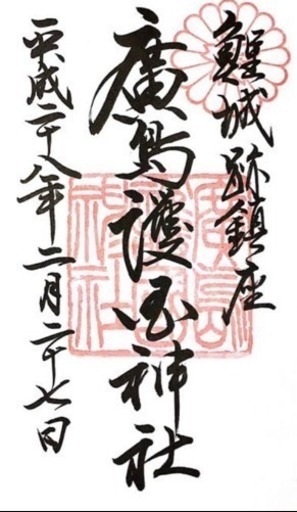 鯉城跡鎮座
廣島護國神社
平成二十八年二月二十七日